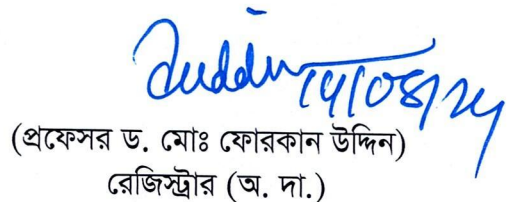 14/08/24
(প্রফেসর ড. মোঃ ফোরকান উদ্দিন)
রেজিস্ট্রার (অ. দা.)